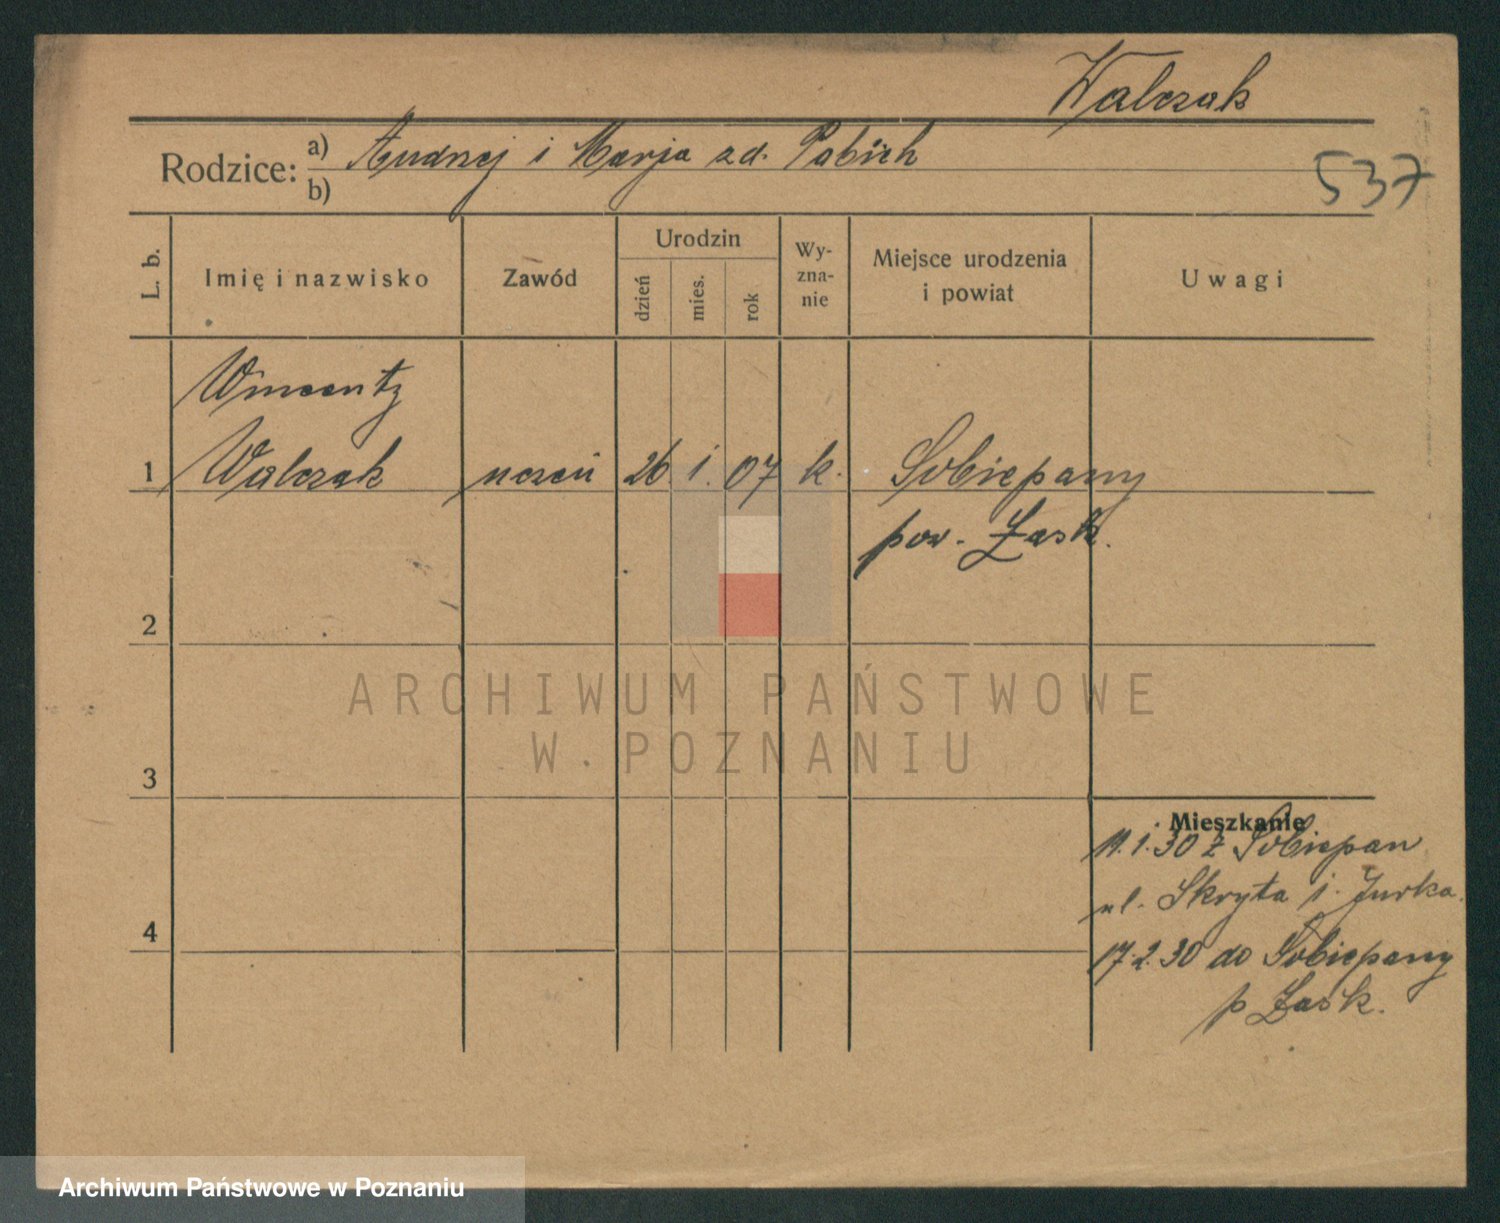 Walczak
Rodzice: a) Andrzej i Marja zd. Pabich
b)
537
L. b.
Imię i nazwisko
Zawód
Urodzin
dzień
mies.
rok
Wy-
zna-
nie
Miejsce urodzenia
i powiat
Uwagi
Wincenty
1 Walczak uczeń 26 1. 07 k. Sobiepany
pow. Łask.
2
3
4
Mieszkanie
11.1.30 z Sobiepan
ul. Skryta j. Jurka.
17.2.30 do Sobiepany
p Łask.
ARCHIWUM PAŃSTWOWE
W POZNANIU
Archiwum Państwowe w Poznaniu